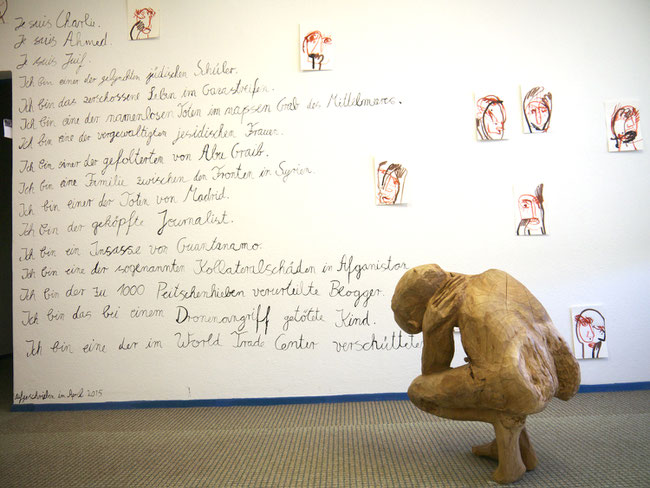 Je suis Charlie.
Je suis Ahmed.
Je suis Juif.
Ich bin einer der gelynchten jüdischen Schüler.
Ich bin das zerschossene Leben im Gazastreifen.
Ich bin eine der namenlosen Toten im nassen Grab des Mittelmeers.
Ich bin eine der vergewaltigten jesidischen Frauen.
Ich bin einer der gefolterten von Abu Graib.
Ich bin eine Familie zwischen den Fronten in Syrien.
Ich bin einer der Toten von Madrid.
Ich bin der geköpfte Journalist.
Ich bin ein Insasse von Guantanamo.
Ich bin eine der sogenannten Kollateralschäden in Afganistan
Ich bin der zu 1000 Peitschenhieben verurteilte Blogger.
Ich bin das bei einem Dronenangriff getötete Kind.
Ich bin eine der im World Trade Center verschütteten
aufgeschrieben im April 2015